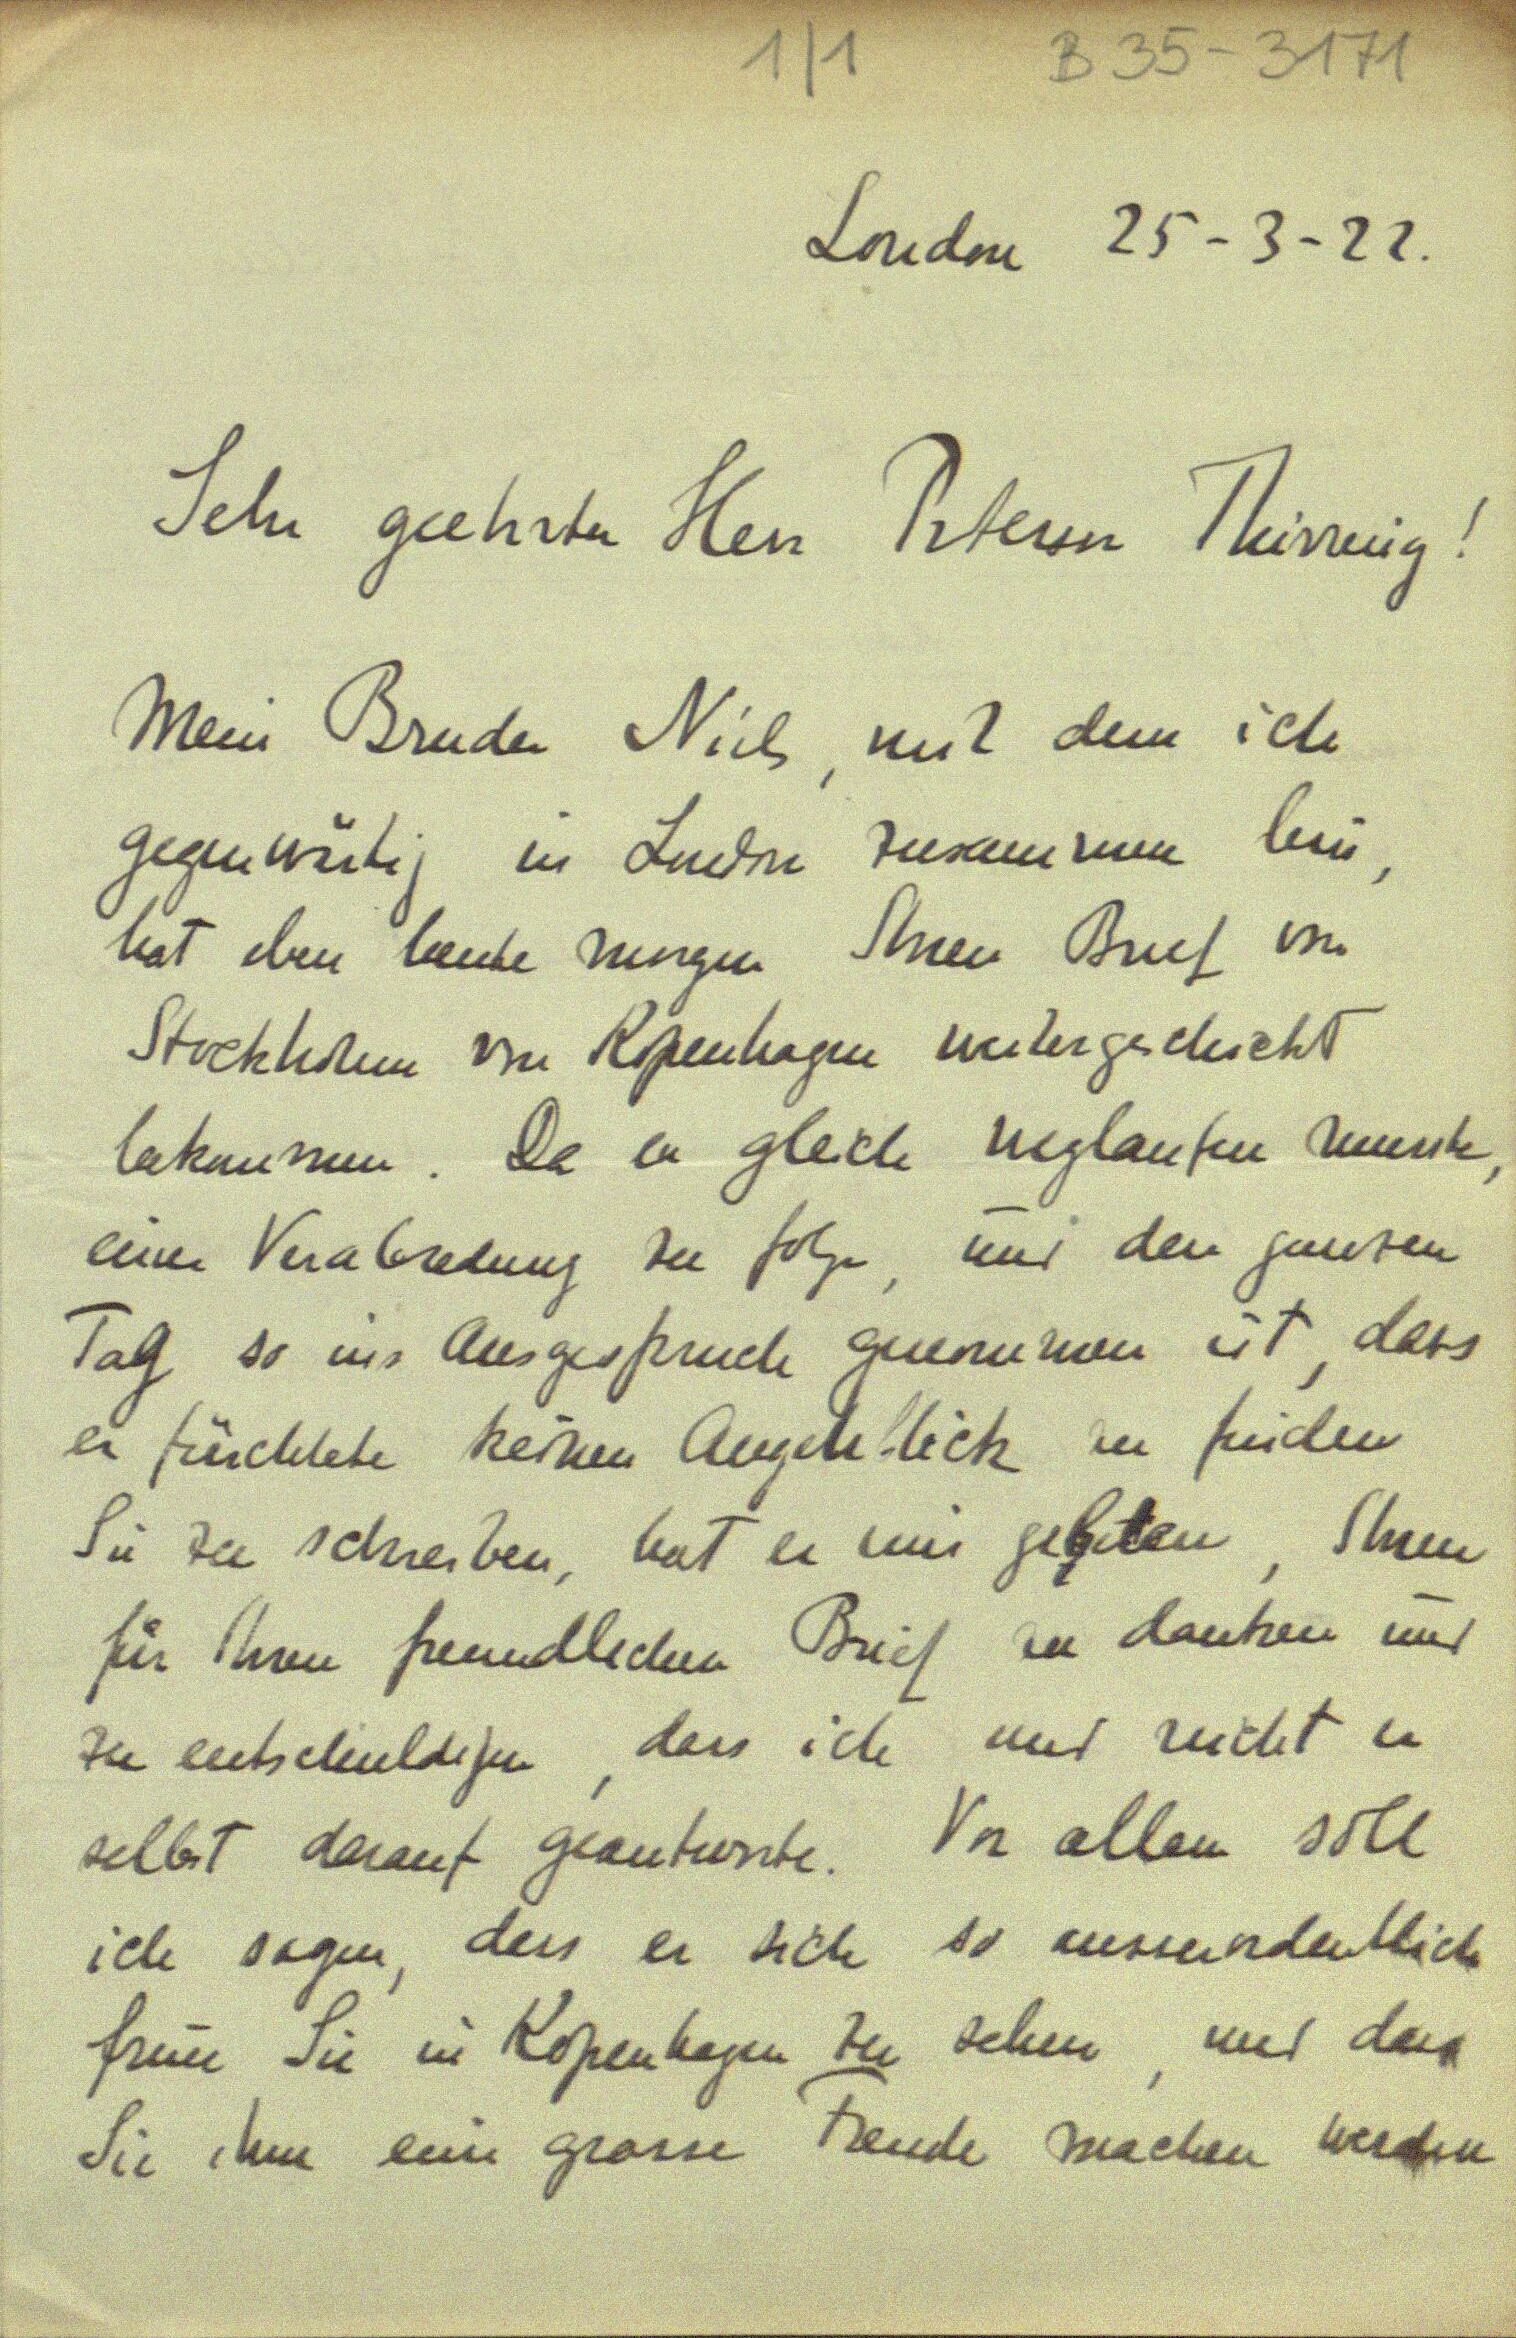 1/1 B 35-3171
London 25-3-22.
Sehr geehrter Herr Thirring!
Mein Bruder Niels, mit dem ich
gegenwärtig in London zusammen bin,
hat eben heute morgen Ihren Brief von
Stockholm von Kopenhagen weitergeschickt
bekommen. Da er gleich weglaufen musste,
einer Verabredung zu folge, und den ganzen
Tag so ins Ausgespruch genommen ist, dass
er fürchtete keinen Augenblick zu finden
Sie zu schreiben, hat er mir gebeten, Ihnen
für Ihren freundlichen Brief zu danken und
zu entschuldigen, dass ich und nicht er
selbst darauf geantwortet. Vor allem soll
ich sagen, dass er sich so ausserordentlich
freue Sie in Kopenhagen zu sehen, und dass
Sie ihm eine grosse Freude machen werden